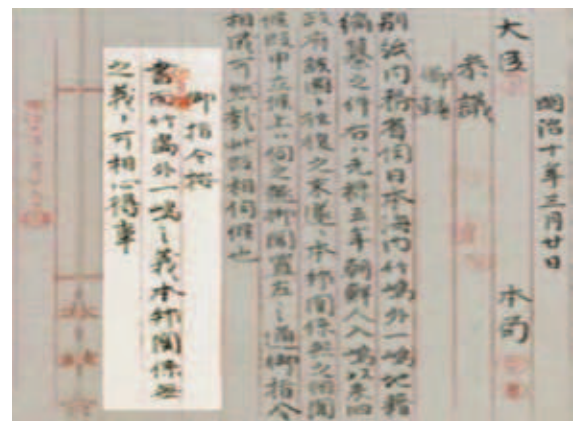 明治十年三月廿日
大臣 本局
参議
卿輔
別紙内務省伺日本海内竹嶋外一嶋地籍
編纂之件右ハ元禄五年朝鮮人入嶋以来旧
政府該国ト往復之末遂ニ本邦関係無之相聞
候段申立候上ハ伺之趣御聞置左之通御指令
相成可然哉此段相伺候也
御指令按
書面竹島外一嶋之義本邦関係無
之義ト可相心得事